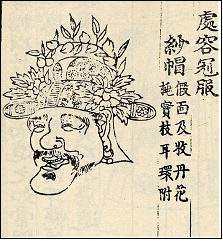 處容冠服
紗帽
假面及牧丹花
桃實枝耳環附